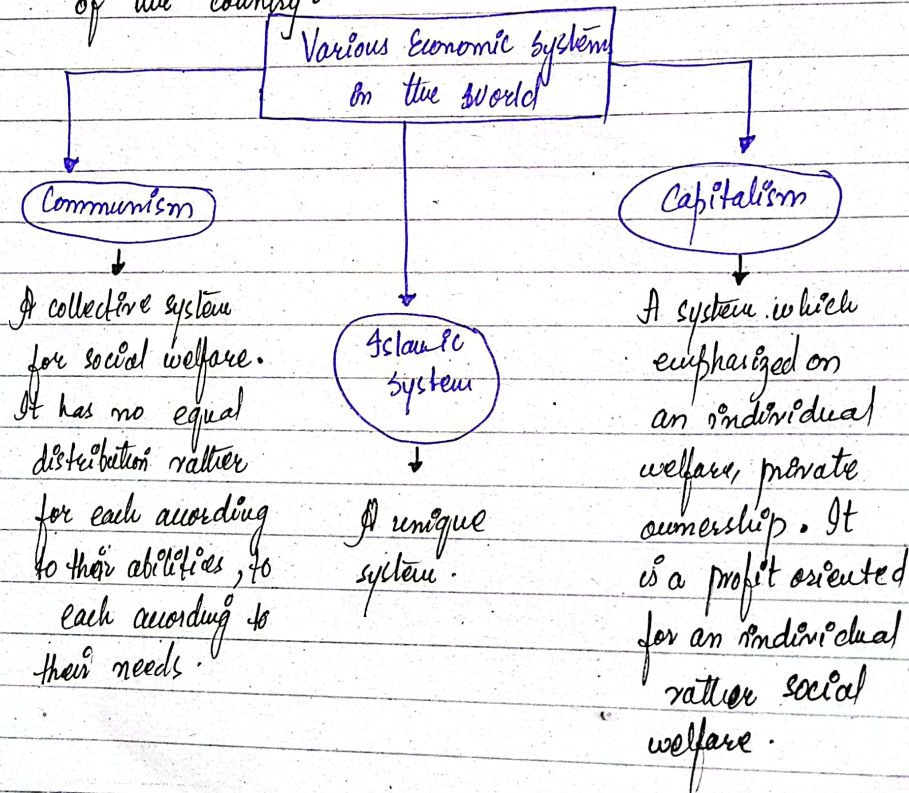 of the country.
Various Economic System
in the World
Communism
A collective system
for social welfare.
It has no equal
distribution rather
for each acording
to their abilities, to
each acording to
their needs.
Islamic
System
A unique
system.
Capitalism
A system which
emphasized on
an individual
welfare, private
ownership. It
is a profit oriented
for an individual
rather social
welfare.